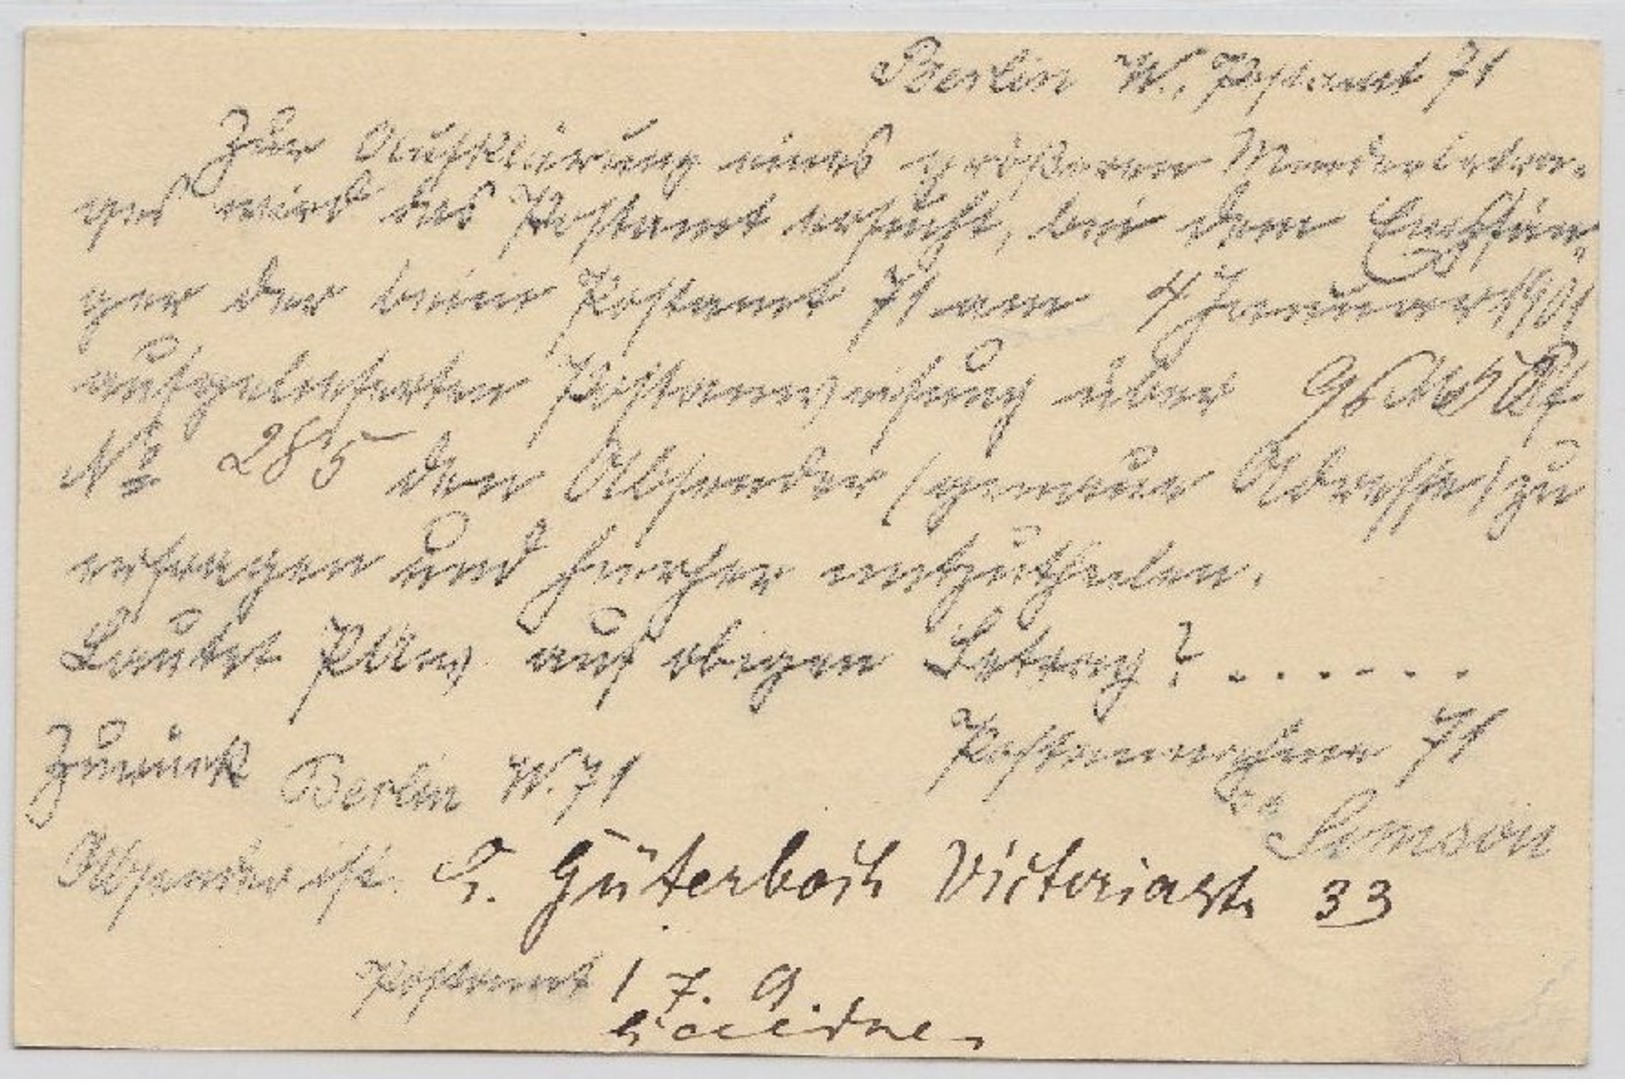 Berlin W., Postamt 71
Zur Aufklärung eines größeren Minderbetra-
ges wird das Postamt ersucht, bei dem Empfän-
ger der beim Postamt 71 am 4 Januar 1901
aufgelieferten Postanweisung über 96 M 5 Pf
No 285 den Absender (genaue Adresse) zu
erfragen und hierher mitzutheilen.
Lautet PAnw auf obigen Betrag? . . . . . .
Zurück Berlin W. 71
Postannahme 71
Simson
Absender ist. S. Güterbock Victoriastr 33
Postamt 1 7. 9.